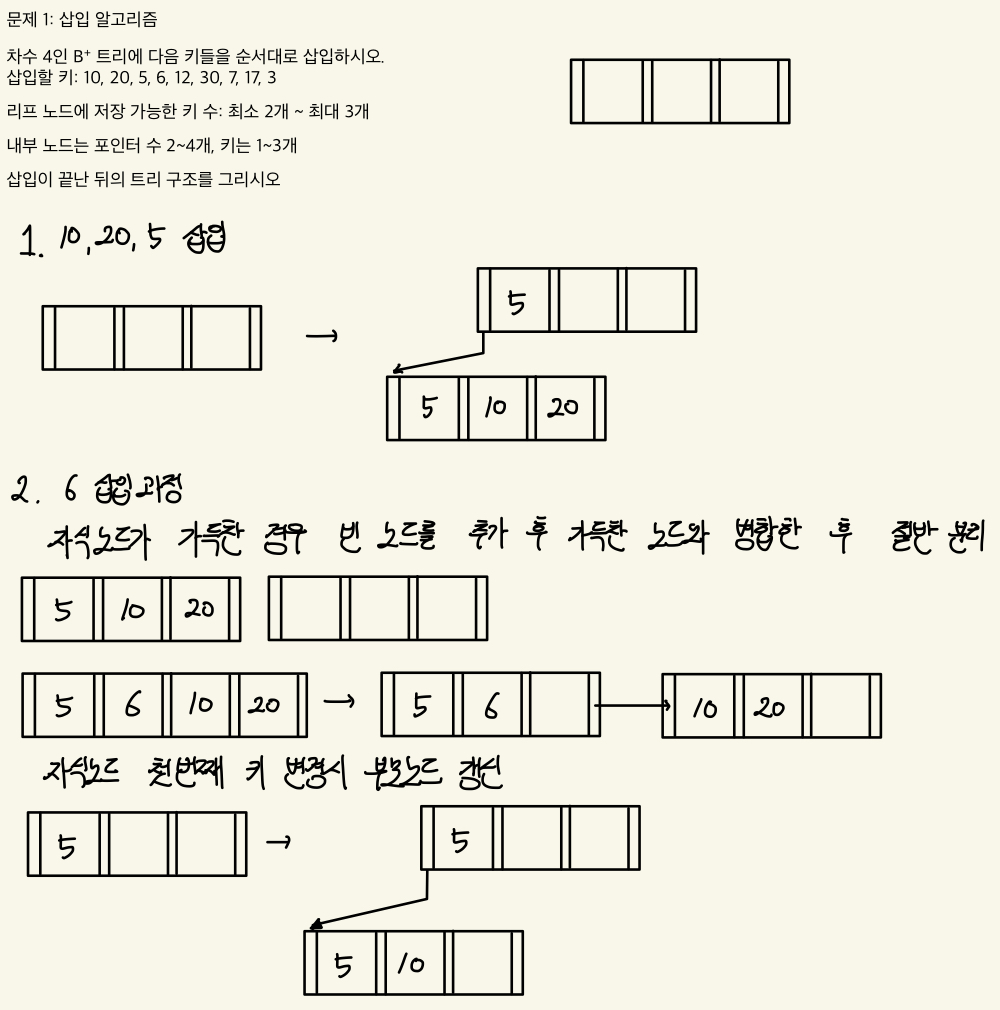 문제 1: 삽입 알고리즘
차수 4인 B⁺ 트리에 다음 키들을 순서대로 삽입하시오.
삽입할 키: 10, 20, 5, 6, 12, 30, 7, 17, 3
리프 노드에 저장 가능한 키 수: 최소 2개 ~ 최대 3개
내부 노드는 포인터 수 2~4개, 키는 1~3개
삽입이 끝난 뒤의 트리 구조를 그리시오
1. 10, 20, 5 삽입
5
5 10 20
2. 6 삽입과정
자식노드가 가득찬 경우 빈 노드를 추가 후 가득찬 노드와 병합한 후 절반 분리
5 10 20
5 6 10 20 → 5 6 10 20
자식노드 첫번째 키 변경시 부모노드 갱신
5 → 5
5 10